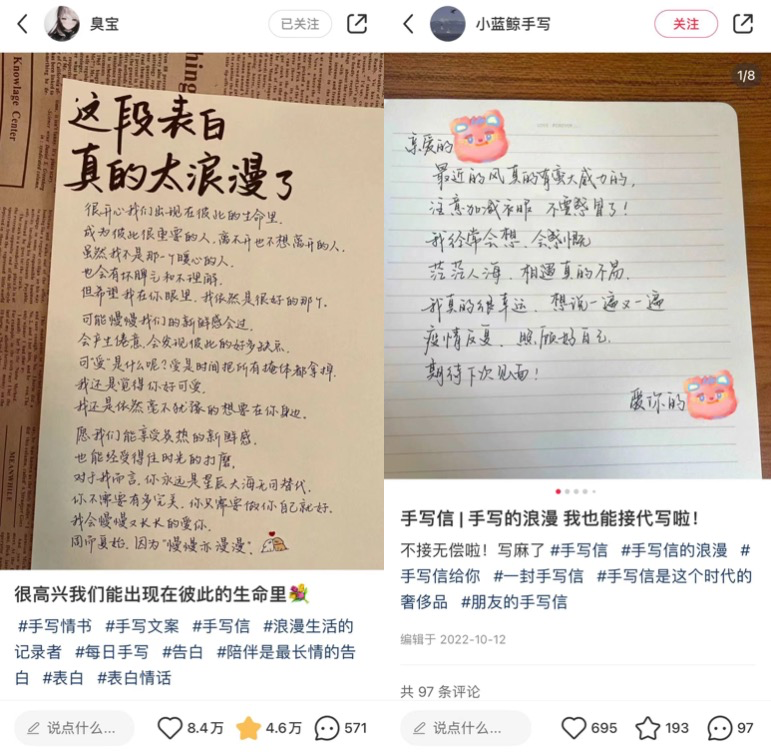 臭宝
已关注
Knowlage Center
MEANWHILE
这段表白
真的太浪漫了
很开心我们出现在彼此的生命里.
成为彼此很重要的人,离不开也不想离开的人.
虽然我不是那一个暖心的人.
也会有坏脾气和不理解.
但希望我在你眼里,我依然是很好的那个.
可能慢慢我们的新鲜感会过.
会产生倦意,会发现彼此的好多缺点.
可"爱"是什么呢?爱是时间把所有掩体都拿掉.
我还是觉得你好可爱.
我还是依然毫不犹豫的想要在你身边.
愿我们能享受炙热的新鲜感.
也能经受得住时光的打磨.
对于我而言,你永远是星辰大海无可替代.
你不需要有多完美,你只需要做你自己就好.
我会慢慢又长长的爱你.
周而复始,因为"慢慢亦漫漫".
很高兴我们能出现在彼此的生命里
#手写情书 #手写文案 #手写信 #浪漫生活的
记录者 #每日手写 #告白 #陪伴是最长情的告
白 #表白 #表白情话
说点什么...
8.4万
4.6万
571
小蓝鲸手写
关注
1/8
亲爱的
最近的风真的有蛮大威力的,
注意加减衣服 不要感冒了!
我经常会想、会感慨
茫茫人海、相遇真的不易.
我真的很幸运、想说一遍又一遍
疫情反复、照顾好自己.
期待下次见面!
爱你的
手写信 | 手写的浪漫 我也能接代写啦!
不接无偿啦!写麻了 #手写信 #手写信的浪漫 #
手写信给你 #一封手写信 #手写信是这个时代的
奢侈品 #朋友的手写信
编辑于 2022-10-12
共 97 条评论
说点什么...
695
193
97